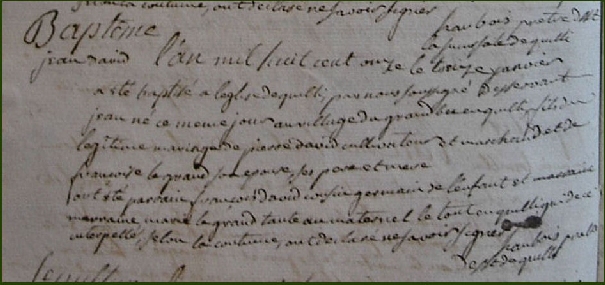 suivant la coutume, ont declaré ne savoir signer
Baptême
jean david
l'an mil huit cent onze le treize janvier
a été baptisé a l'eglise de quilli par nous soussigné desservant
jean né ce meme jour au village du grand en quilly, fils du
legitime mariage de pierre david cultivateur et marchand et de
francoise le grand son epouse, ses pere et mere
ont été parrain françois david cousin germain de l'enfant et
marraine marie le grand tante au maternel le tout en quilly qui de ce
interpellés, selon la coutume, ont declaré ne savoir signer
desst de quilly